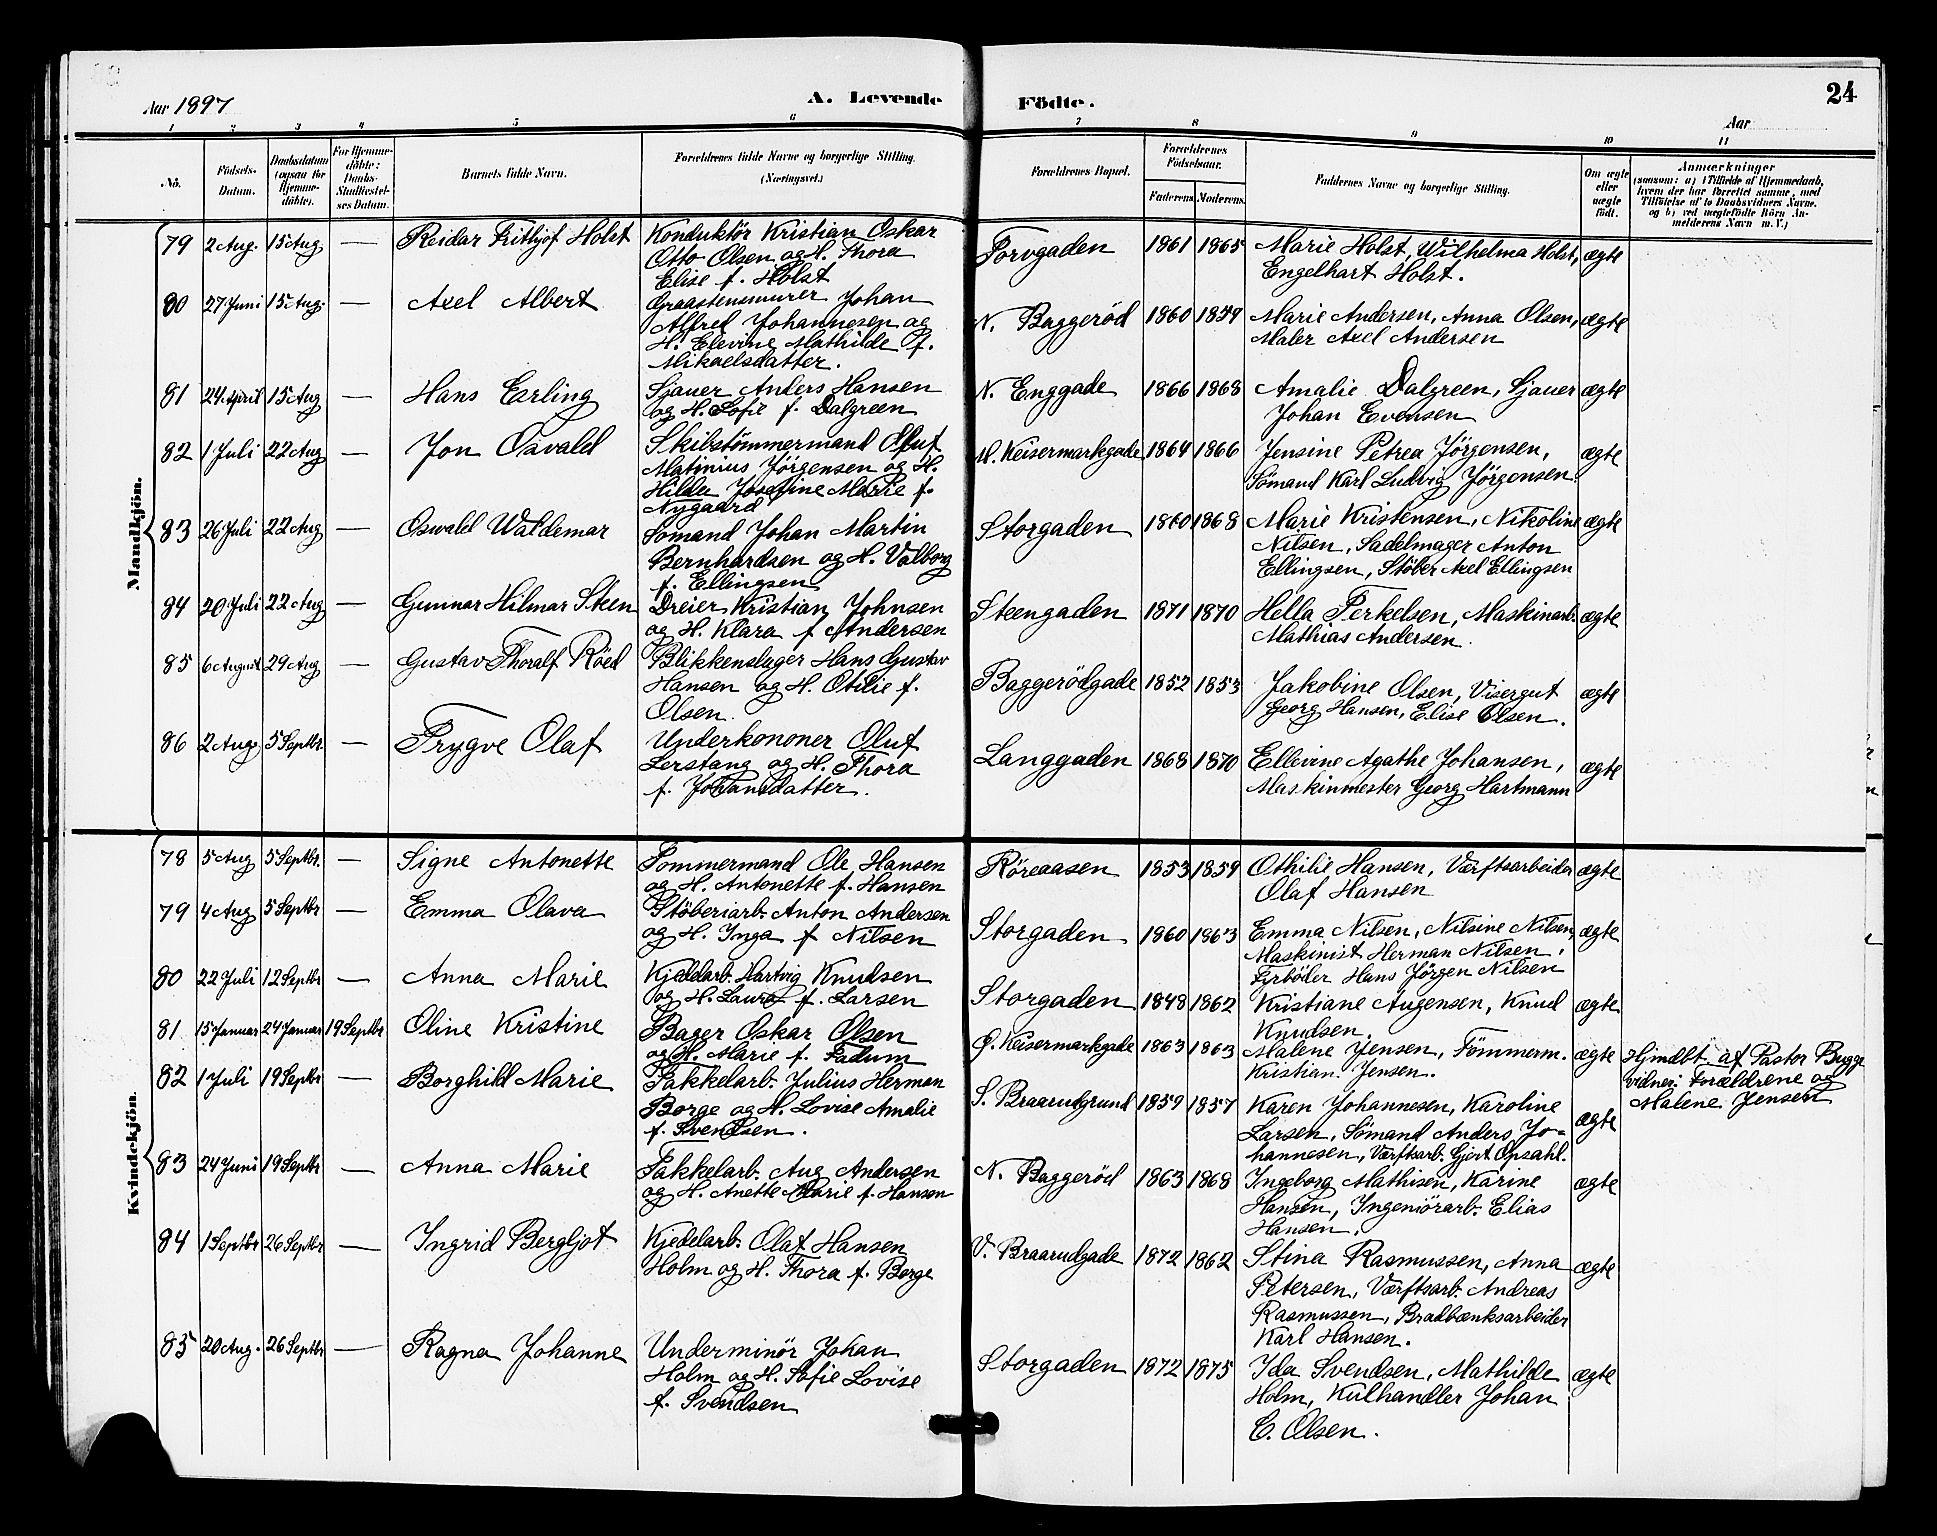 Aar 1897
A. Levende
Födte.
24
Aar
1 2 3 4 5 6 7 8 9 10 11
No.
Födsels-
Datum.
Daabsdatum
(ogsaa for
Hjemme-
döbte).
For Hjemme-
döbte:
Daabs-
Stadfæstel-
ses Datum.
Barnets fulde Navn.
Forældrenes fulde Navne og borgerlige Stilling.
(Næringsvei.)
Forældrenes Bopæl.
Forældrenes
Födselsaar.
Faderens Moderens
Faddernes Navne og borgerlig Stilling.
Om ægte
eller
uægte
födt.
Anmærkninger
(saasom: a) i Tilfælde af Hjemmedaab,
hvem der har forrettet samme, med
Tilföielse af to Daabsvidners Navne.
og b) ved uægtefödte Börn An-
melderens Navn m. V.)
Mandkjön.
79 2 Aug. 15 Aug — Reidar Frithjof Holst
Konduktör Kristian Oskar
Otto Olsen og H. Thora
Elise f. Holst
Torvgaden 1861 1865
Marie Holst, Wilhelma Holst,
Engelhart Holst.
ægte
80 27 Juni 15 Aug. — Axel Albert
Graastensmurer Johan
Alfred Johannesen og
H. Elevine Mathilde f.
Mikaelsdatter.
N. Baggeröd 1860 1859
Marie Andersen, Anna Olsen,
Maler Axel Andersen
ægte
81 24 April 15 Aug — Hans Erling
Sjauer Anders Hansen
og H. Sofie f. Dalgreen
N. Enggade 1866 1868
Amalie Dalgreen, Sjauer
Johan Evensen
ægte
82 1 Juli 22 Aug — Jon Osvald
Skibstömmermand Oluf
Matinius Jörgensen og H.
Hilda Josefine Marie f.
Nygaard
M. Keisermarkgade 1864 1866
Jensine Petrea Jörgensen,
Sömand Karl Ludvig Jörgensen.
ægte
83 26 Juli 22 Aug — Oswald Waldemar
Sömand Johan Martin
Bernhardsen og H. Valborg
f. Ellingsen
Storgaden 1860 1868
Marie Kristensen, Nikoline
Nilsen, Sadelmager Anton
Ellingsen, Stöber Axel Ellingsen
ægte
84 20 Juli 22 Aug — Gunnar Hilmar Steen
Dreier Kristian Johnsen
og H. Klara f. Andersen
Steengaden 1871 1870
Hella Terkelsen, Maskinarb.
Mathias Andersen.
ægte
85 6 August 29 Aug — Gustav Thoralf Röed
Blikkenslager Hans Gustav
Hansen og H. Otilie f.
Olsen.
Baggerödgade 1852 1853
Jakobine Olsen, Visergut
Georg Hansen, Elise Olsen.
ægte
86 2 Aug. 5 Septbr — Trygve Olaf
Underkononer Oluf
Lerstang og H. Thora
f. Johansdatter.
Langgaden 1868 1870
Ellevine Agathe Johansen,
Maskinmester Georg Hartmann
ægte
Kvindekjön.
78 5 Aug 5 Septbr. — Signe Antonette
Tömmermand Ole Hansen
og H. Antonette f. Hansen
Röreaasen 1853 1859
Othilie Hansen, Værftsarbeider
Olaf Hansen
ægte
79 4 Aug 5 Septbr — Emma Olava
Stöberiarb. Anton Andersen
og H. Inga f Nilsen
Storgaden 1860 1863
Emma Nilsen, Nilsine Nilsen,
Maskinist Herman Nilsen,
Fyrböder Hans Jörgen Nilsen
ægte
80 22 Juli 12 Septbr — Anna Marie
Kjedelarb. Hartvig Knudsen
og H. Laura f. Larsen
Storgaden 1848 1862
Kristiane Augensen, Knud
Knudsen.
ægte
81 15 Januar 24 Januar 19 Septbr Oline Kristine
Bager Oskar Olsen
og H. Marie f. Fadum
Ø. Keisermarkgade 1863 1863
Malene Jensen, Tömmerm.
Kristian Jensen.
ægte
Hjmdbt af Pastor Bugge
vidner: Forældrene og
Malene Jensen
82 1 Juli 19 Septbr — Borghild Marie
Takkelarb. Julius Herman
Borge og H. Lovise Amalie
f. Svendsen.
S. Braarudgrund 1859 1857
Karen Johannesen, Karoline
Larsen, Sömand Anders Jo-
hannesen, Værftsarb. Gjert Opsahl.
ægte
83 24 Juni 19 Septbr — Anna Marie
Takkelarb. Aug Andersen
og H. Anette Marie f. Hansen
N. Baggeröd 1863 1868
Ingeborg Mathisen, Karine
Hansen, Ingeniörarb. Elias
Hansen.
ægte
84 1 Septbr 26 Septbr — Ingrid Bergljot
Kjedelarb. Olaf Hansen
Holm og H. Thora f. Borge
V. Braarudgade 1872 1862
Stina Rasmussen, Anna
Petersen, Værftsarb. Andreas
Rasmussen, Bradbænksarbeider
Karl Hansen.
ægte
85 20 Aug. 26 Septbr — Ragna Johanne
Underminör Johan
Holm og H. Sofie Lovise
f. Svendsen
Storgaden 1872 1875
Ida Svendsen, Mathilde
Holm, Kulhandler Johan
C. Olsen.
ægte